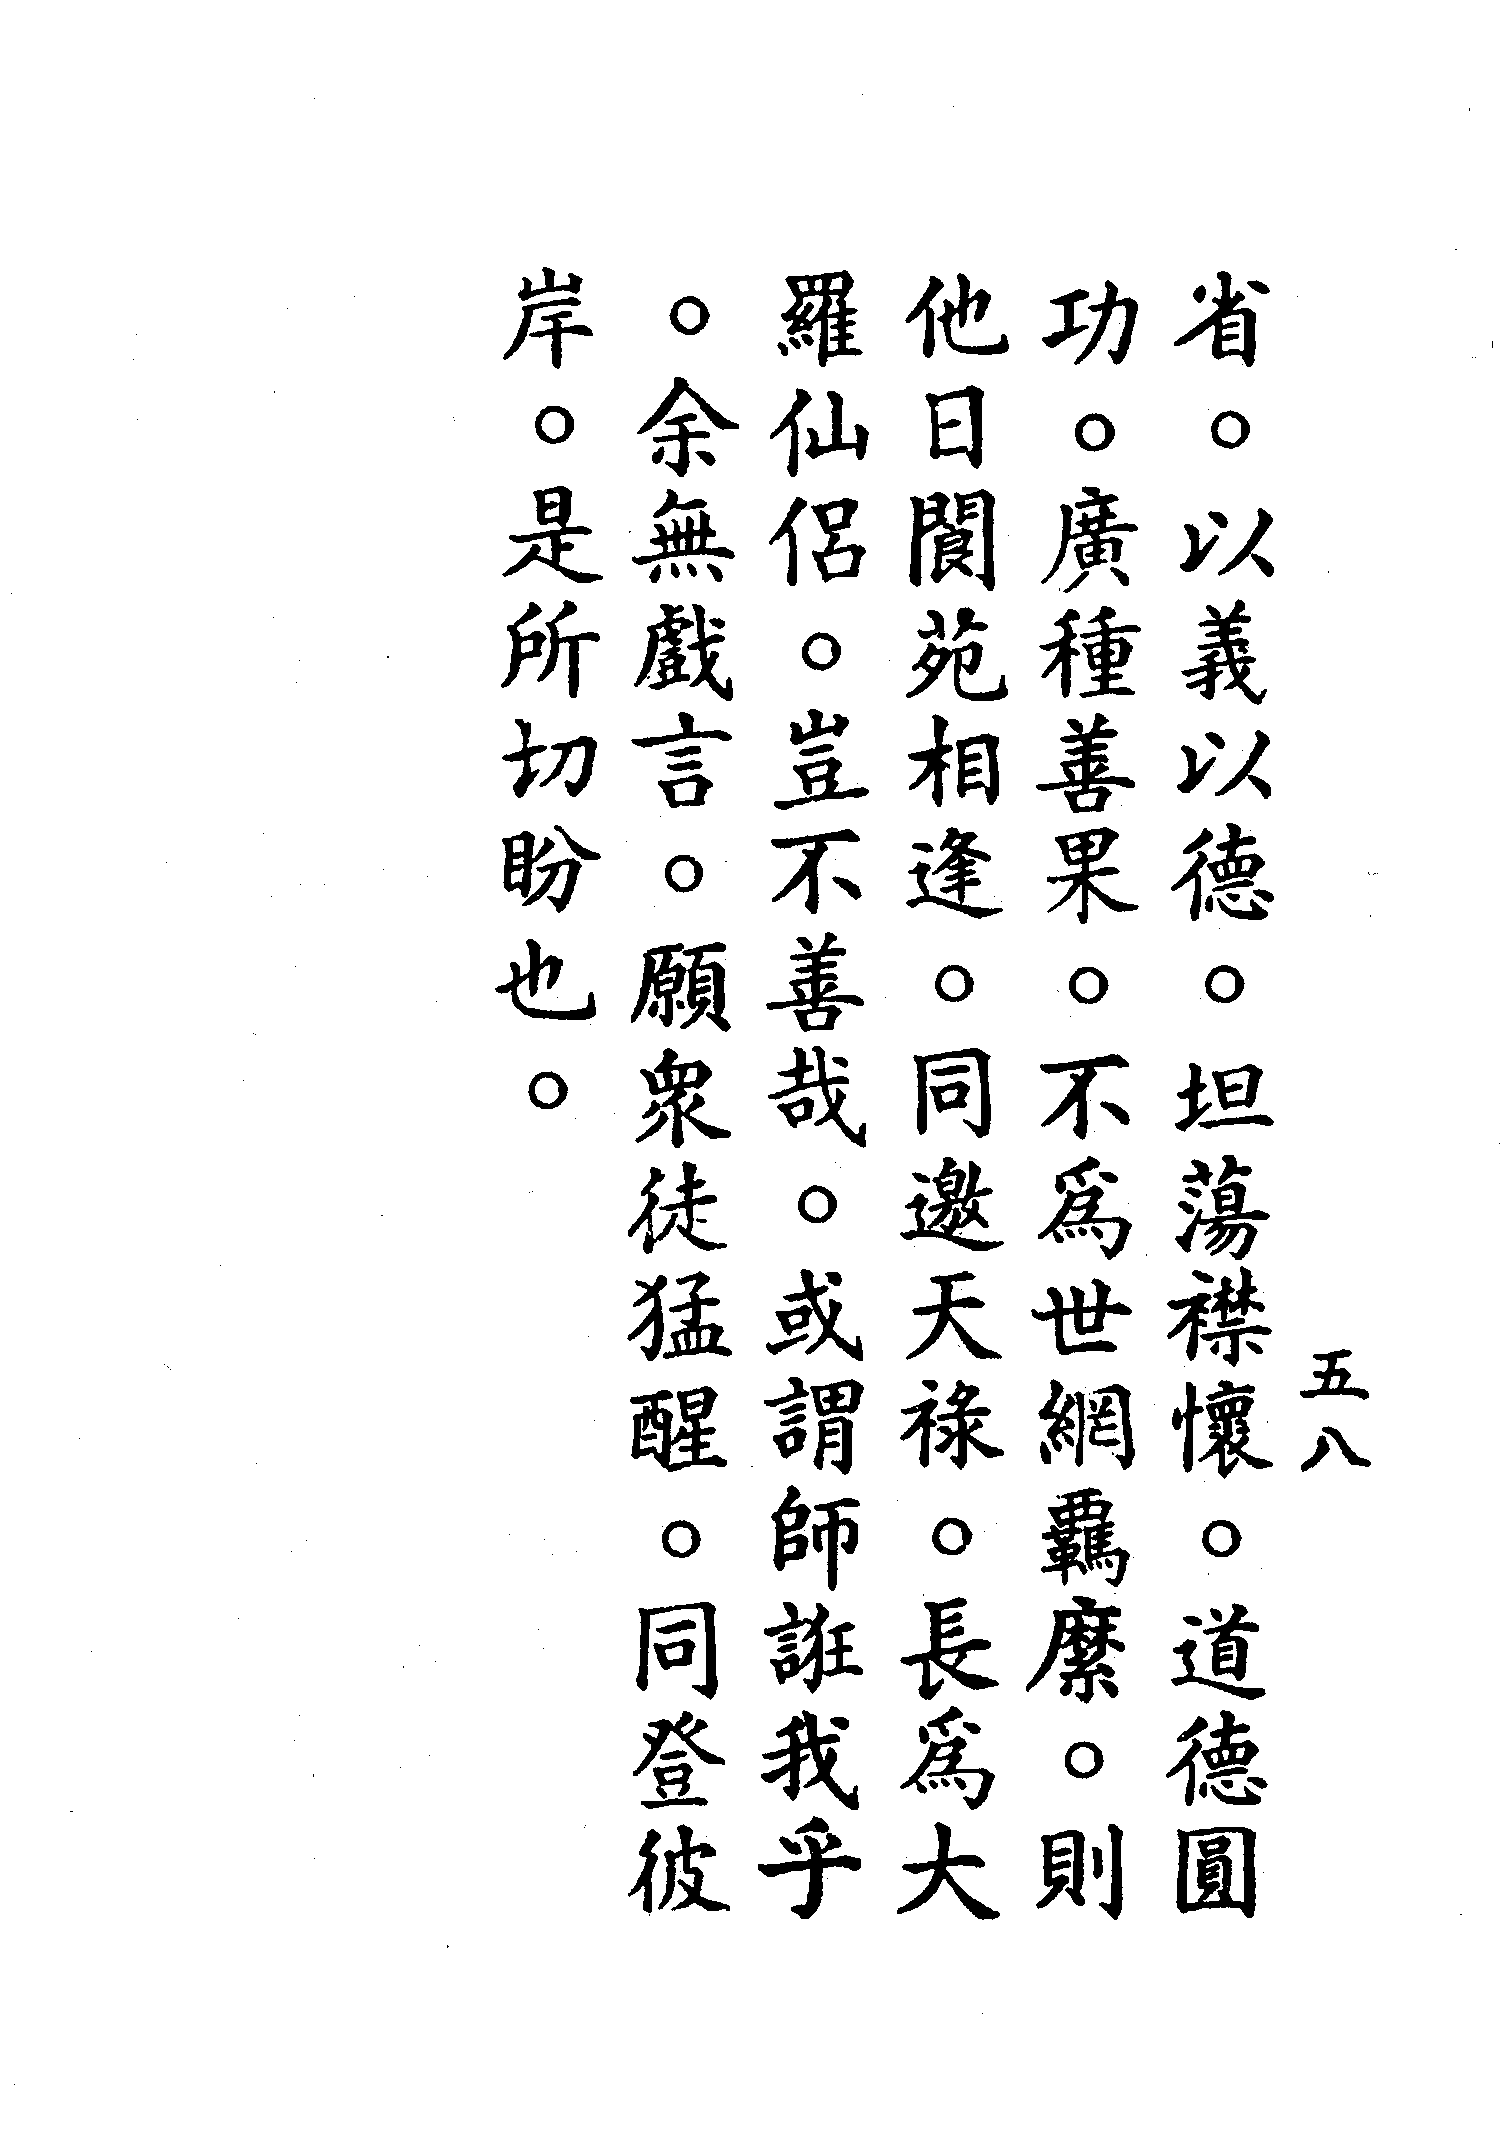 五八
省。以義以德。坦蕩襟懷。道德圓
功。廣種善果。不為世網羈縻。則
他日閬苑相逢。同邀天祿。長為大
羅仙侶。豈不善哉。或謂師誑我乎
。余無戲言。願衆徒猛醒。同登彼
岸。是所切盼也。